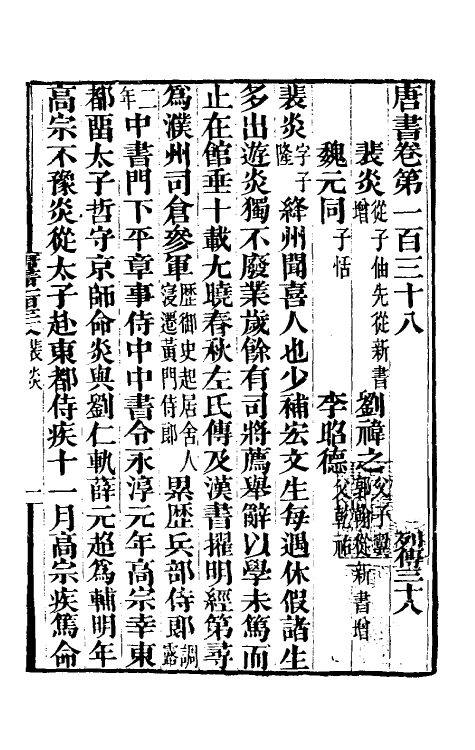 唐書卷第一百三十八 列傳三十八
裴炎從子伷先從新書增 劉禕之父子翼 郭翰從新書增
魏元同子恬 李昭德父乾祐
裴炎字子隆絳州聞喜人也少補宏文生每遇休假諸生
多出遊炎獨不廢業歲餘有司將薦舉辭以學未篤而
止在館垂十載尤曉春秋左氏傳及漢書擢明經第尋
為濮州司倉參軍歷御史起居舍人寖遷黃門侍郎累歷兵部侍郎調露
二年中書門下平章事侍中中書令永淳元年高宗幸東
都留太子哲守京師命炎與劉仁軌薛元超為輔明年
高宗不豫炎從太子赴東都侍疾十一月高宗疾篤命
裴炎
一